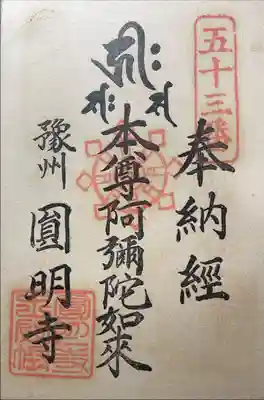 五十三番
奉納經
本尊阿彌陀如來
豫州
圓明寺